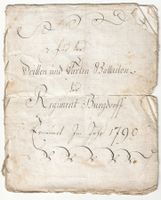 für das
Dritten und Vierten Bataillon
des
Regiment Burgdorff
im Jahr 1790